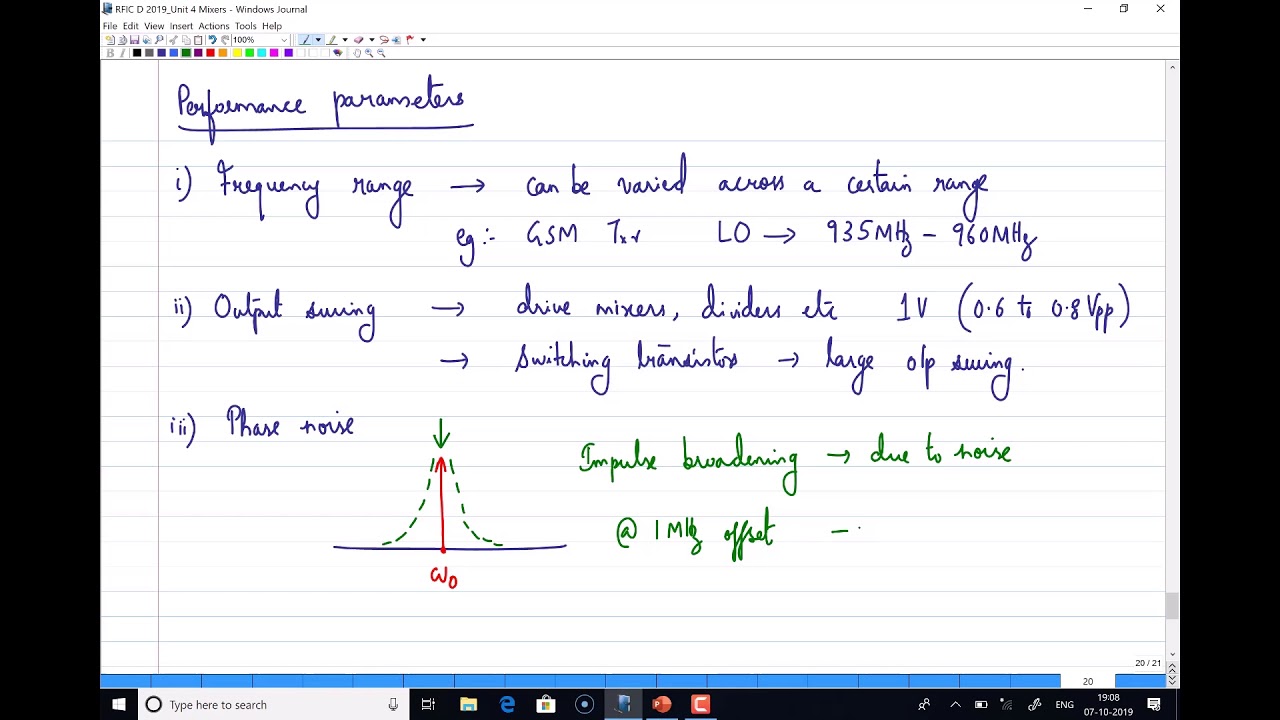 RFIC D 2019_Unit 4 Mixers - Windows Journal
File Edit View Insert Actions Tools Help
100%
B I
Performance parameters
i) Frequency range → can be varied across a certain range
eg:- GSM Txr LO → 935MHz - 960MHz
ii) Output swing → drive mixers, dividers etc 1V (0.6 to 0.8 Vpp)
→ Switching transistors → large o/p swing.
iii) Phase noise
Impulse broadening → due to noise
@ 1MHz offset -
ω0
20 / 21
20
Type here to search
ENG
19:08
07-10-2019